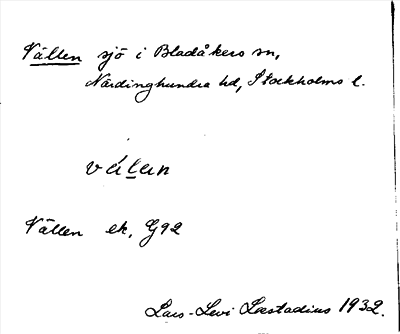 Vällen sjö i Bladåkers sn,
Närdinghundra hd, Stockholms l.
välan
Vällen ek, G92
Lars-Levi Læstadius 1932.